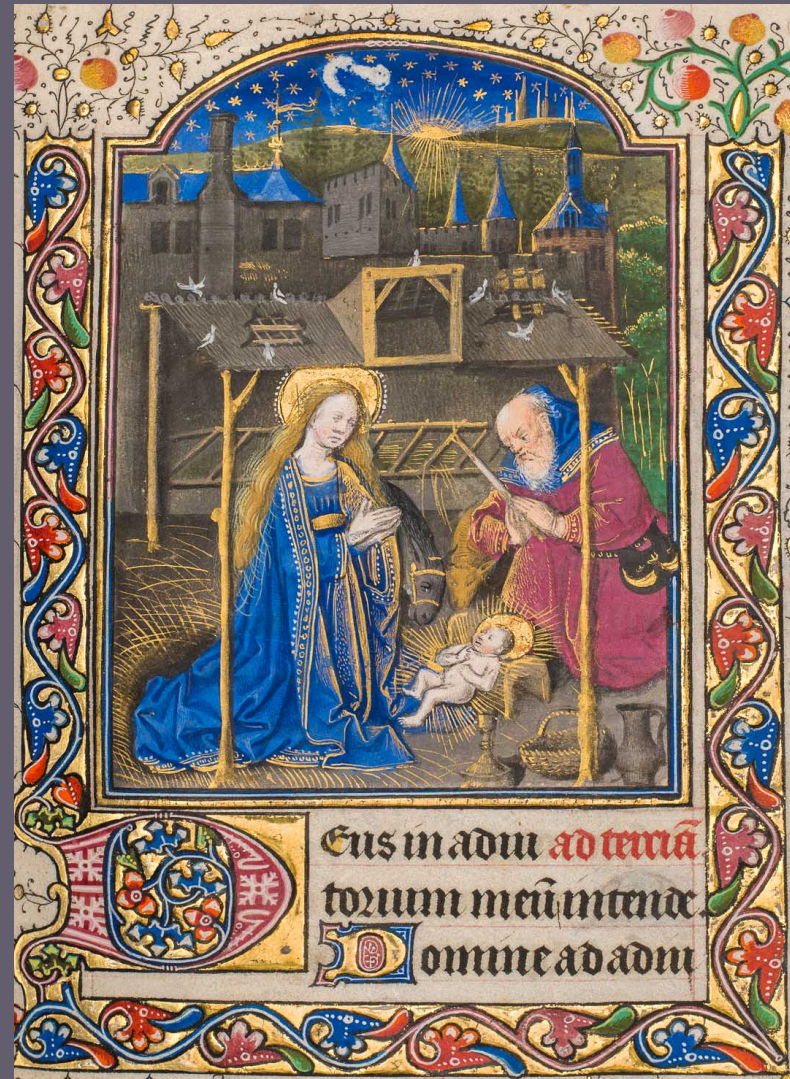 Deus in adiu ad terciã
torium meũ intende.
Domine ad adiu